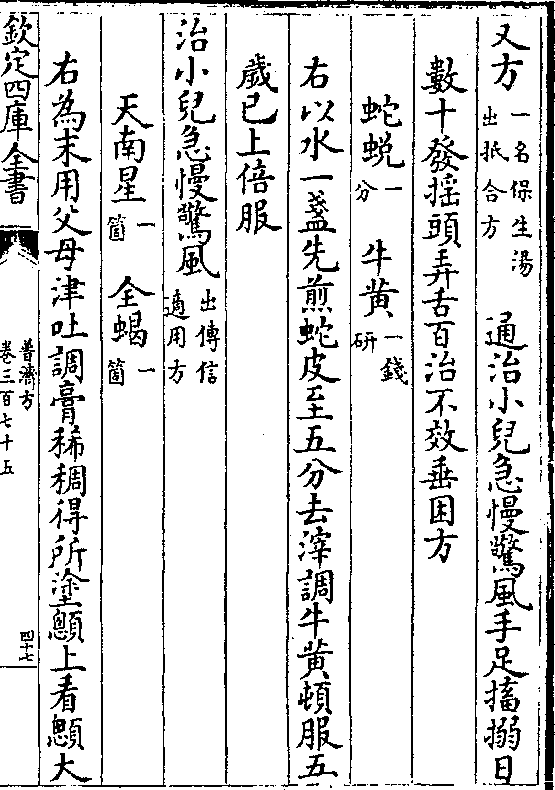 又方一名保生湯出抵合方 通治小兒急慢驚風手足搐搦日
數十發揺頭弄舌百治不效垂困方
蛇蛻一分 牛黄一錢研
右以水一盞先煎蛇皮至五分去滓調牛黄頓服五
歲已上倍服
治小兒急慢驚風出傳信適用方
天南星一箇 全蝎一箇
右為末用父母津吐調膏稀稠得所塗顖上看顖大
欽定四庫全書
普濟方
卷三百七十五
四十七